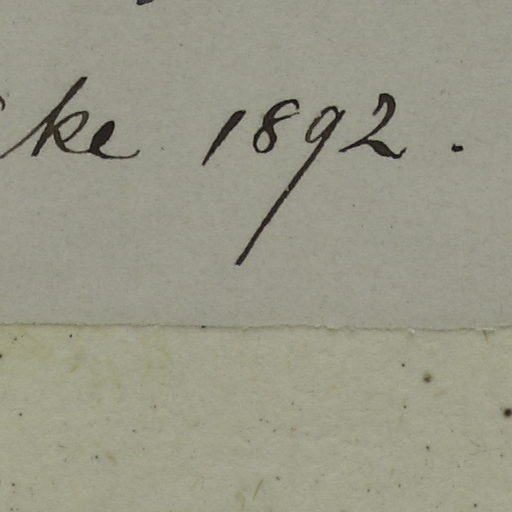 ke 1892.